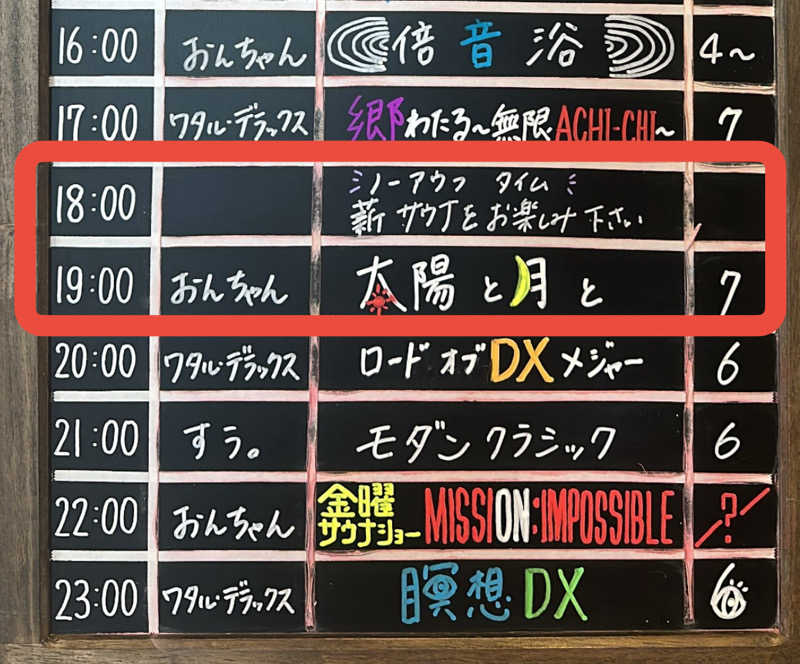 16:00 おんちゃん 倍音浴 4～
17:00 ワタル・デラックス 郷わたる～無限ACHI-CHI～ 7
18:00 ノーアウフ タイム
薪サウナをお楽しみ下さい
19:00 おんちゃん 太陽と月と 7
20:00 ワタル・デラックス ロードオブDXメジャー 6
21:00 すう。 モダンクラシック 6
22:00 おんちゃん 金曜サウナショー MISSION:IMPOSSIBLE ?
23:00 ワタル・デラックス 瞑想DX 6